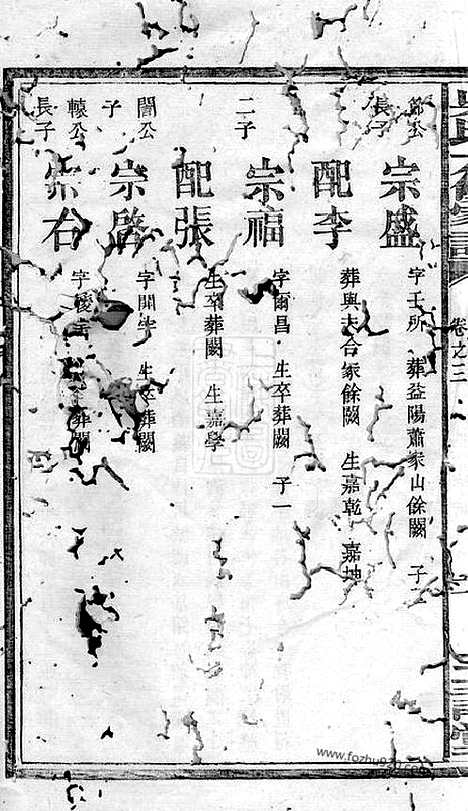 卷之三
節公
長子
宗盛
字壬所 葬益陽蕭家山餘闕 子
配李
葬與夫合冢餘闕 生嘉乾 嘉坤
二子
宗福
字爾昌 生卒葬闕 子一
配張
生卒葬闕 生嘉學
誾公
子
宗啓
字開 生卒葬闕
轅公
長子
宗右
字 葬闕
www.fozhu920.com